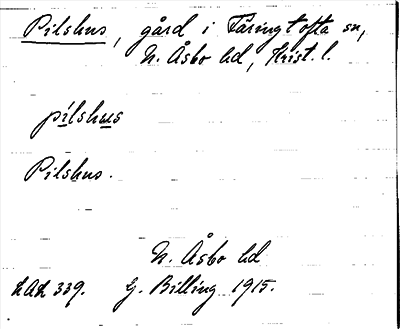 Pilshus, gård i Färingtofta sn,
N. Åsbo hd, Krist. l.
pilshus
Pilshus.
N. Åsbo hd
339. G. Billing 1915.